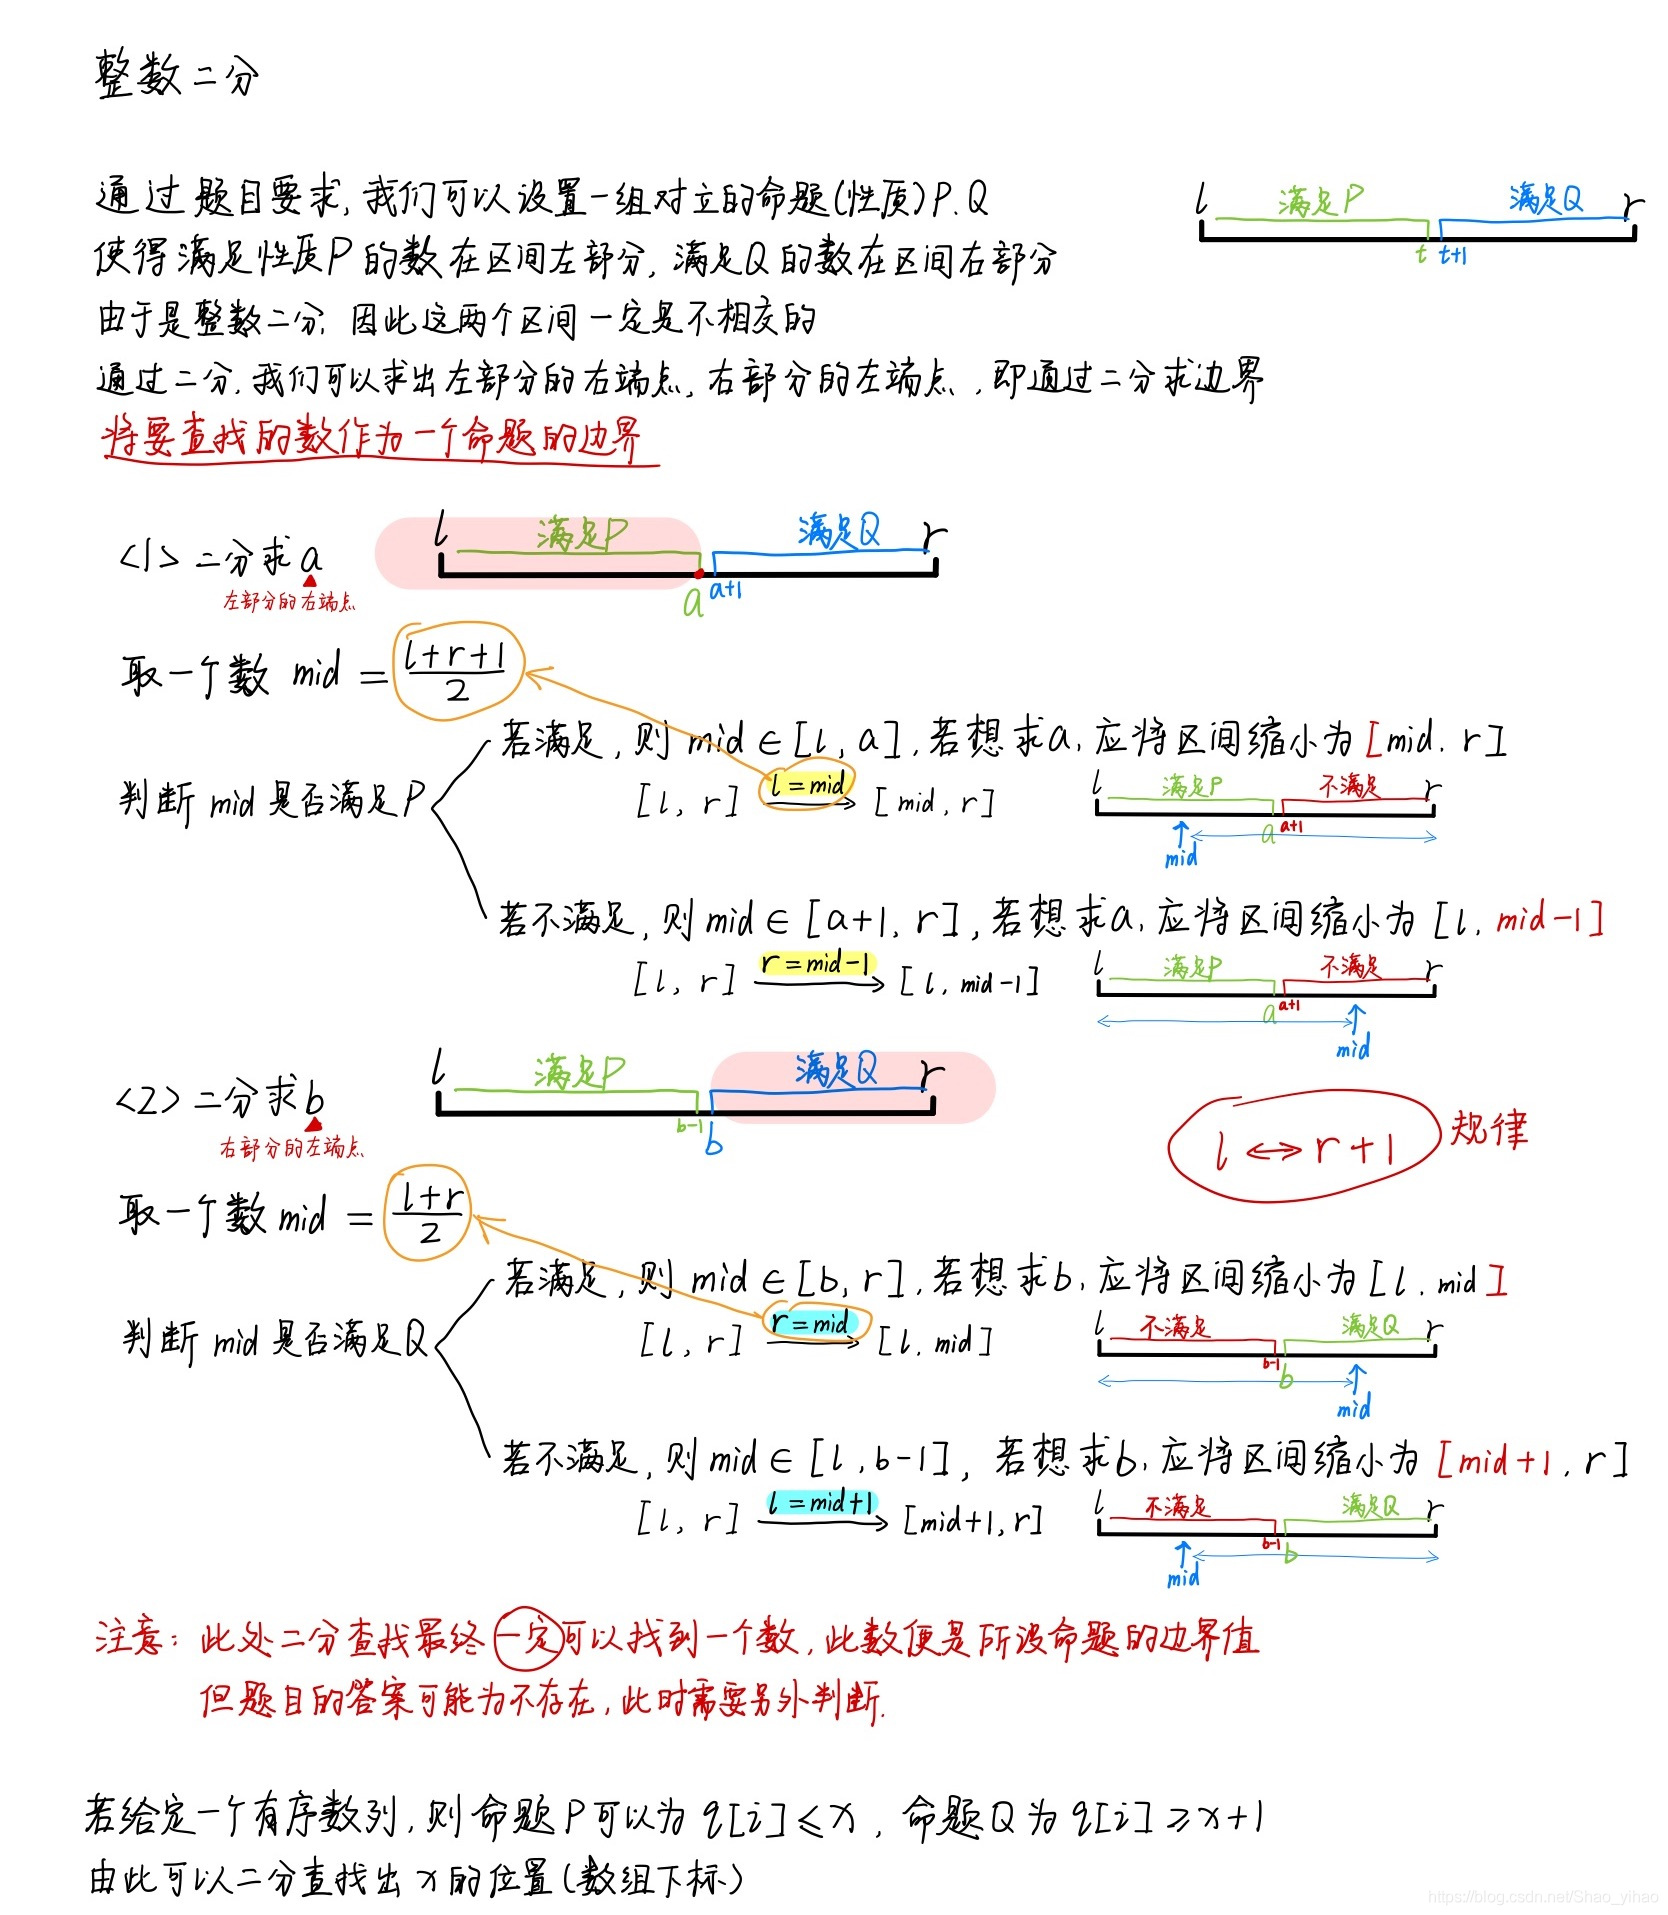 整数二分
通过题目要求,我们可以设置一组对立的命题(性质)P.Q
使得满足性质P的数在区间左部分,满足Q的数在区间右部分
由于是整数二分,因此这两个区间一定是不相交的
通过二分,我们可以求出左部分的右端点,右部分的左端点,即通过二分求边界
将要查找的数作为一个命题的边界
l 满足P 满足Q r
t t+1
<1> 二分求a
左部分的右端点
l 满足P 满足Q r
a a+1
取一个数 mid = (l+r+1)/2
判断 mid 是否满足P
若满足,则 mid ∈ [l, a],若想求a,应将区间缩小为[mid, r]
[l, r] l=mid [mid, r]
l 满足P 不满足 r
a a+1
mid
若不满足,则 mid ∈ [a+1, r],若想求a,应将区间缩小为 [l, mid-1]
[l, r] r=mid-1 [l, mid-1]
l 满足P 不满足 r
a a+1
mid
<2> 二分求b
右部分的左端点
l 满足P 满足Q r
b-1 b
l ↔ r+1 规律
取一个数 mid = (l+r)/2
判断 mid 是否满足Q
若满足,则 mid ∈ [b, r],若想求b,应将区间缩小为 [l, mid]
[l, r] r=mid [l, mid]
l 不满足 满足Q r
b-1 b
mid
若不满足,则 mid ∈ [l, b-1],若想求b,应将区间缩小为 [mid+1, r]
[l, r] l=mid+1 [mid+1, r]
l 不满足 满足Q r
b-1 b
mid
注意:此处二分查找最终一定可以找到一个数,此数便是所设命题的边界值
但题目的答案可能为不存在,此时需要另外判断.
若给定一个有序数列,则命题P可以为 q[i]≤x,命题Q为 q[i]≥x+1
由此可以二分查找出x的位置(数组下标)
https://blog.csdn.net/Shao_yihao